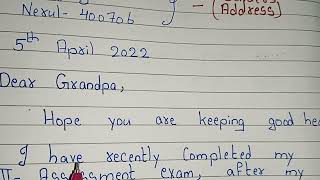 Nerul- 400706 - (Address)
5th April 2022
Dear Grandpa,
Hope you are keeping good
I have recently completed my
II- Assessment exam, after my